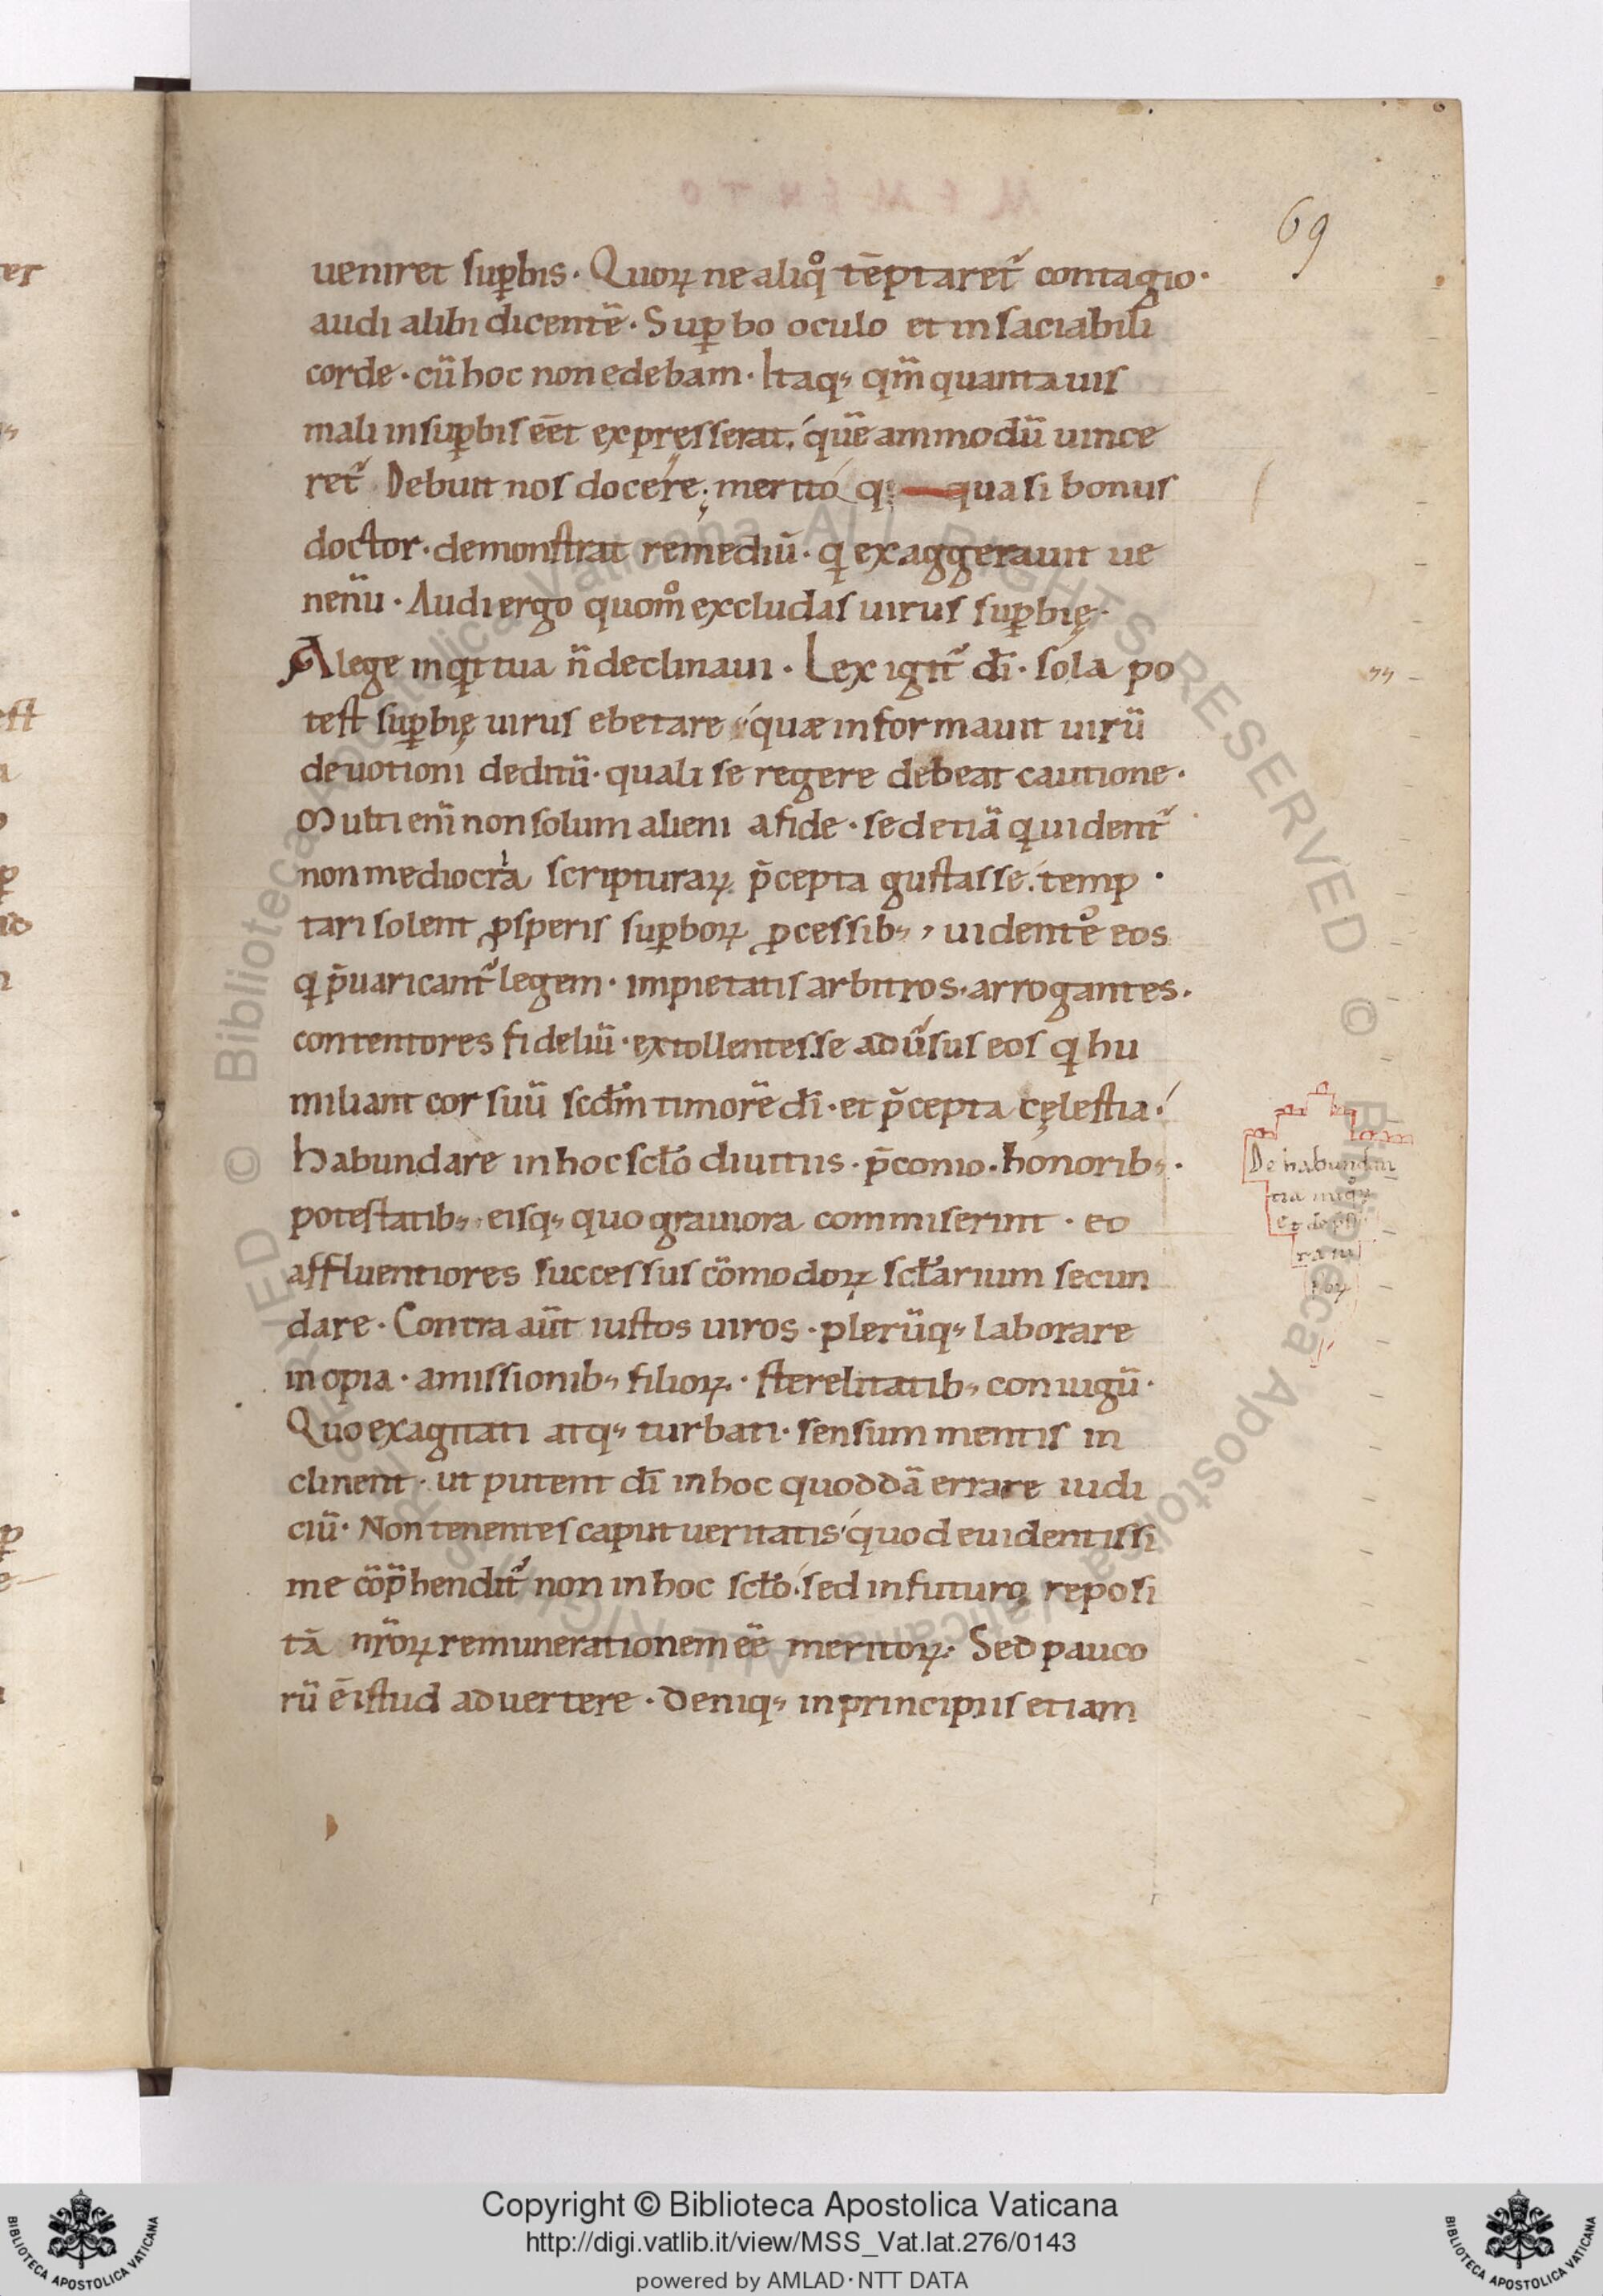 69
ueniret sup̱bis · Quoꝝ ne aliqͦ tēptaret᷑ contagio ·
audi alibi dicentē · Sup̱bo oculo et insaciabili
corde · cū hoc non edebam · Itaq; qm̄ quanta uis
mali in sup̱bis eēt expresserat · quēammodū uince
ret᷑ Debuit nos docere ; merito q quasi bonus
doctor · demonstrat remediū · q exaggerauit ue
nenū · Audi ergo quomͦ excludas uirus sup̱bię ·
A lege inqt tua n̄ declinaui · Lex igit᷑ dī · sola po
test sup̱bię uirus ebetare · quæ informauit uirū
deuotioni deditū · quali se regere debeat cautione ·
Multi enī non solum alieni a fide · sed etiā qui uident᷑
non mediocria scripturaꝝ p̄cepta gustasse · temp ·
tari solent ꝓsperis sup̱boꝝ ꝓcessib; , uidente eos
q p̄uaricant᷑ legem · impietatis arbitros · arrogantes ·
contentores fideliū · extollentes se aduersus eos q hu
miliant cor suū scd̄m timorē dī · et p̄cepta cęlestia ·
habundare in hoc sctō diuitiis · p̄conio · honorib; ·
potestatib; · eisq; quo grauiora commiserint · eo
affluentiores successus cōmodoꝝ sctārium secun
dare · Contra aūt iustos uiros · plerūq; laborare
inopia · amissionib; filioꝝ · sterelitatib; coniugū ·
Quo exagitati atq; turbati · sensum mentis in
clinent · ut putent dī in hoc quoddā errare iudi
ciū · Non tenentes caput ueritatis · quod euidentissi
me cōp̄hendit᷑ non in hoc sctō · sed in futuro reposi
tā nr̄oꝝ remunerationem eē̄ meritoꝝ · Sed pauco
rū ē istud aduertere · Deniq; in principiis etiam
De habundan
tia
Copyright © Biblioteca Apostolica Vaticana
http://digi.vatlib.it/view/MSS_Vat.lat.276/0143
powered by AMLAD·NTT DATA
BIBLIOTECA APOSTOLICA VATICANA
BIBLIOTECA APOSTOLICA VATICANA